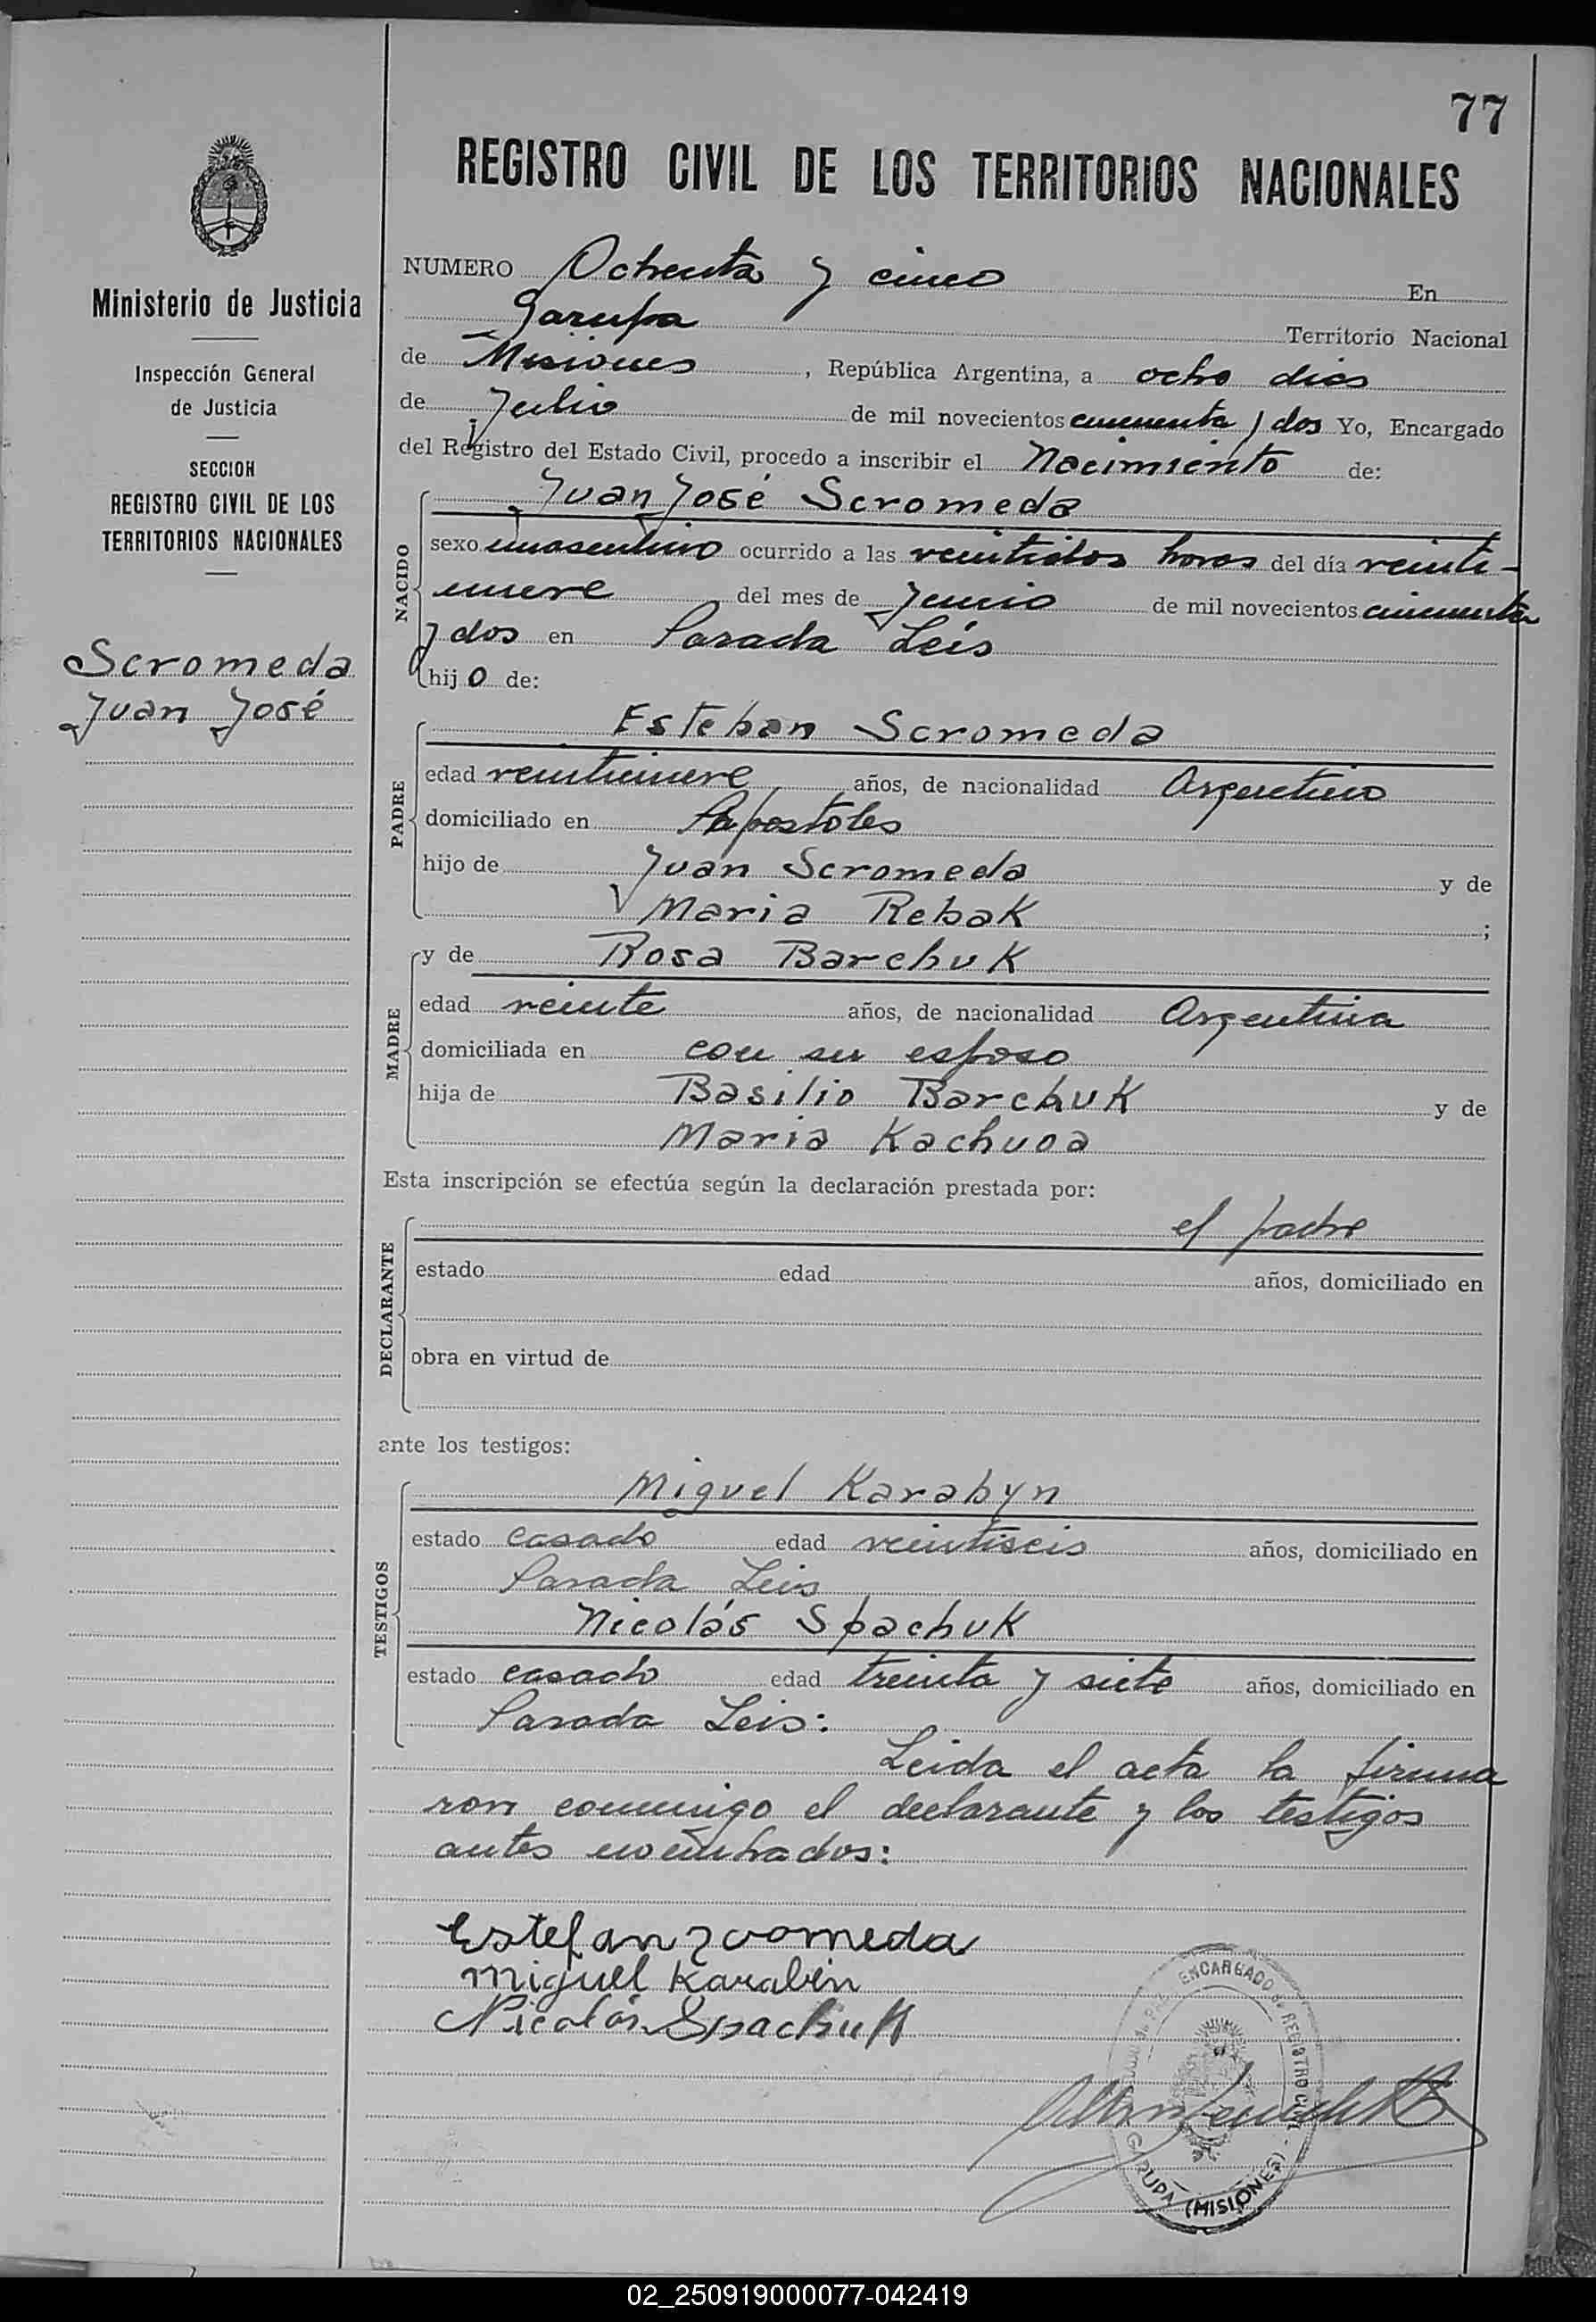 77
REGISTRO CIVIL DE LOS TERRITORIOS NACIONALES
Ministerio de Justicia
Inspección General
de Justicia
SECCION
REGISTRO CIVIL DE LOS
TERRITORIOS NACIONALES
Scromeda
Juan José
NUMERO Ochenta y cinco En
Garupa Territorio Nacional
de Misiones, República Argentina, a ocho dias
de Julio de mil novecientos cincuenta y dos Yo, Encargado
del Registro del Estado Civil, procedo a inscribir el Nacimiento de:
NACIDO
Juan José Scromeda
sexo masculino ocurrido a las veintidos horas del día veinti-
nueve del mes de Junio de mil novecientos cincuenta
y dos en Parada Leis
hijo de:
PADRE
Esteban Scromeda
edad veintinueve años, de nacionalidad Argentino
domiciliado en Apostoles
hijo de Juan Scromeda y de
Maria Rebak ;
MADRE
y de Rosa Barchuk
edad veinte años, de nacionalidad Argentina
domiciliada en con su esposo
hija de Basilio Barchuk y de
Maria Kachuoa
Esta inscripción se efectúa según la declaración prestada por:
DECLARANTE
el padre
estado edad años, domiciliado en
obra en virtud de
ante los testigos:
TESTIGOS
Miguel Karabyn
estado casado edad veintiseis años, domiciliado en
Parada Leis
Nicolás Spachuk
estado casado edad treinta y siete años, domiciliado en
Parada Leis:
Leida el acta la firma
ron conmigo el declarante y los testigos
antes nombrados:
Estefan Scromeda
Miguel Karabin
Nicolás Spachuk
ENCARGADO de REGISTRO CIVIL
GARUPA (MISIONES)
02_250919000077-042419